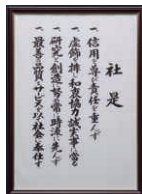 社是
一、信用を尊び責任を重んず
一、虚飾を排し和衷協力誠実事に当る
一、研究と創造に努め常に時流に先んず
一、最高の品質とサービスを以て社会に奉仕す